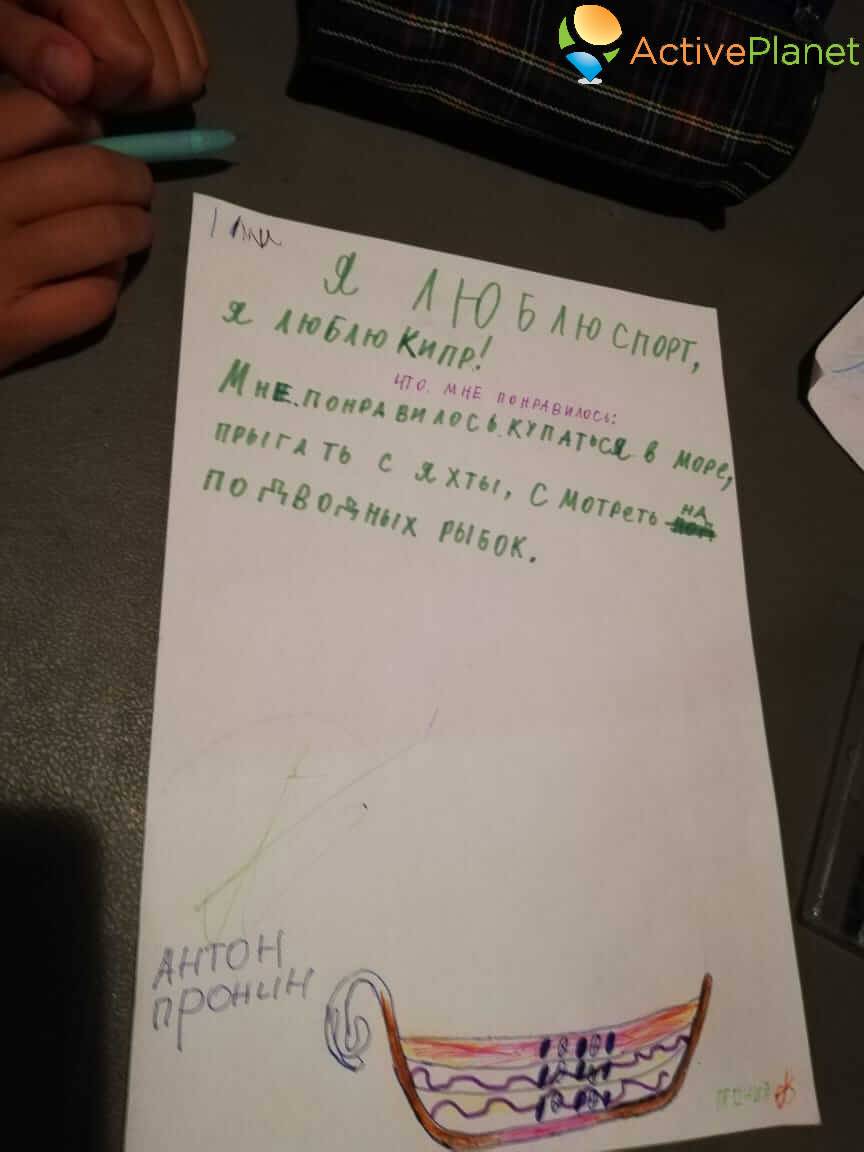 ActivePlanet
Я ЛЮБЛЮ СПОРТ,
Я ЛЮБЛЮ КИПР!
ЧТО. МНЕ ПОНРАВИЛОСЬ:
МНЕ.ПОНРАВИЛОСЬ.КУПАТЬСЯ В МОРЕ,
ПРЫГАТЬ С ЯХТЫ, СМОТРЕТЬ НА
ПОДВОДНЫХ РЫБОК.
АНТОН
ПРОНИН